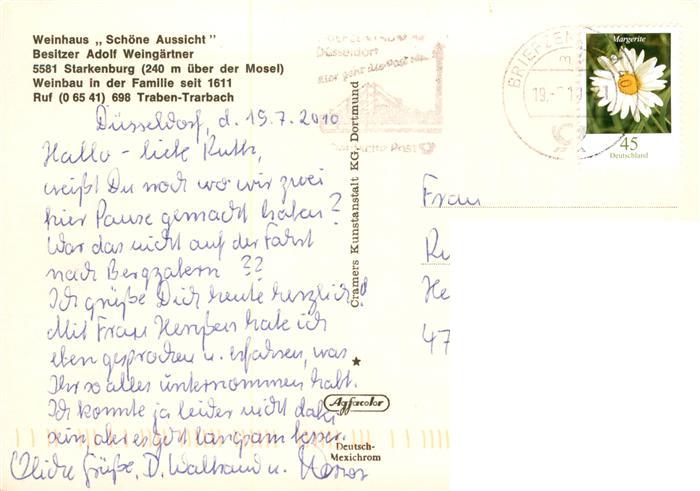 Weinhaus „Schöne Aussicht"
Besitzer Adolf Weingärtner
5581 Starkenburg (240 m über der Mosel)
Weinbau in der Familie seit 1611
Ruf (0 65 41) 698 Traben-Trarbach
Düsseldorf, d. 19.7.2010
Hallo - liebe Ruth,
weißt Du noch wo wir zwei
hier Pause gemacht haben?
War das nicht auf der Fahrt
nach Bergzabern ??
Ich grüße Dich heute herzlich
Mit Frau habe ich
eben gesprochen u. erfahren, was
Ihr so alles unternommen habt.
Ich konnte ja leider nicht dabei
sein, aber es geht langsam besser.
Liebe Grüße, D. Waltraud u.
Cramers Kunstanstalt KG, Dortmund
Agfacolor
Deutsch-
Mexichrom
Düsseldorf
Hier geht die Post
Deutsche Post
BRIEFZEN
19.-
Margerite
45
Deutschland
Frau
Ru
He
47